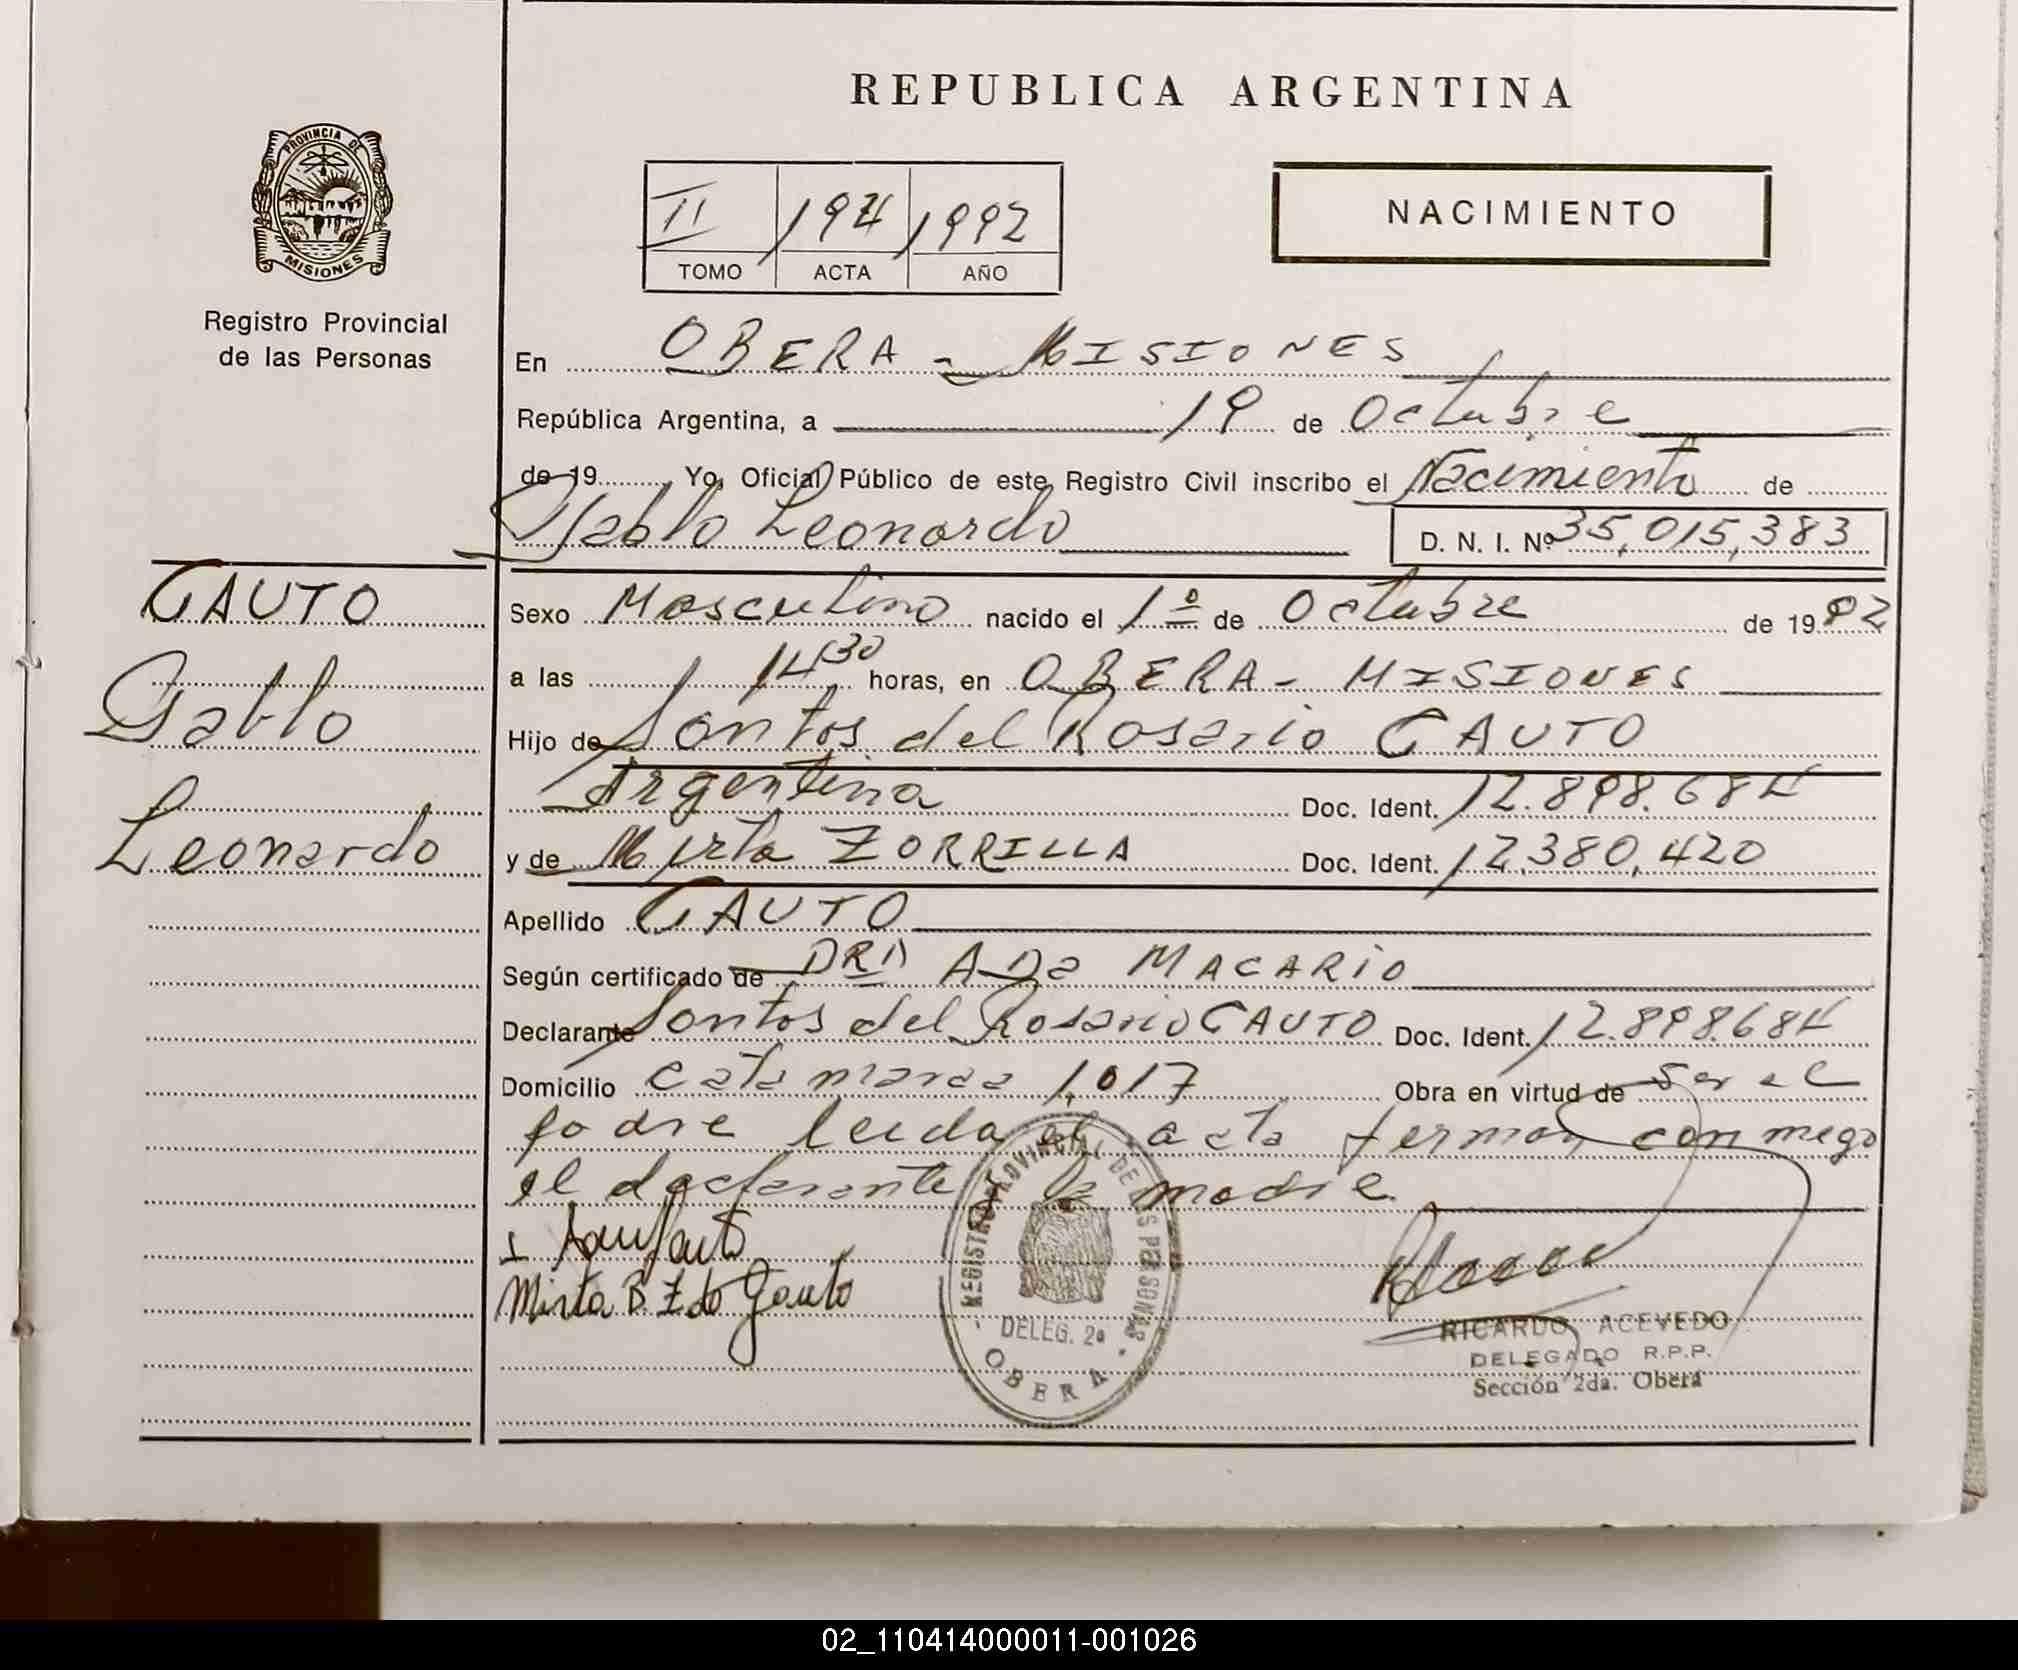 REPUBLICA ARGENTINA
PROVINCIA DE
MISIONES
Registro Provincial
de las Personas
II 194 1992
TOMO ACTA AÑO
NACIMIENTO
En OBERA - MISIONES
República Argentina, a 19 de Octubre
de 19 Yo, Oficial Público de este Registro Civil inscribo el Nacimiento de
Pablo Leonardo D. N. I. Nº 35,015,383
GAUTO
Pablo
Leonardo
Sexo Masculino nacido el 1º de Octubre de 1992
a las 14 30 horas, en OBERA - MISIONES
Hijo de Santos del Rosario GAUTO
Argentina Doc. Ident. 12.898.684
y de Mirta ZORRILLA Doc. Ident. 12,380,420
Apellido GAUTO
Según certificado de DRA ADa MACARIO
Declarante Santos del Rosario GAUTO Doc. Ident. 12.898.684
Domicilio Catamarca 1,017 Obra en virtud de Ser el
padre leida el acta ferman conmego
el declarante la madre
Mirta B. Z. de Gauto
REGISTRO PROVINCIAL DE LAS PERSONAS
DELEG. 2a
OBERA
RICARDO ACEVEDO
DELEGADO R.P.P.
Sección 2da. Oberá
02_110414000011-001026